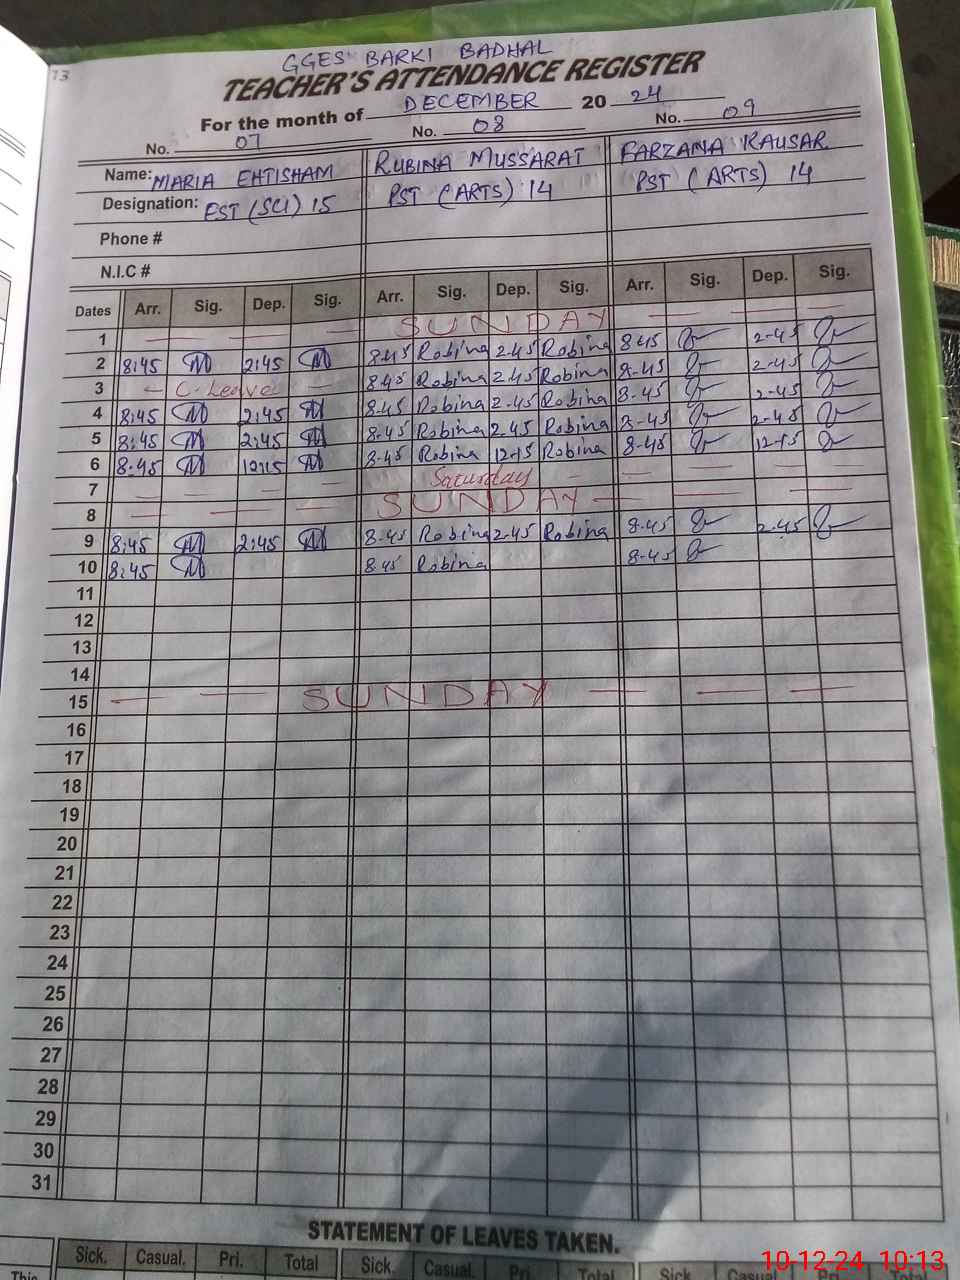 13
GGES BARKI BADHAL
TEACHER'S ATTENDANCE REGISTER
For the month of DECEMBER 20 24
No. 07 No. 08 No. 09
Name: MARIA EHTISHAM RUBINA MUSSARAT FARZANA KAUSAR
Designation: EST (SCI) 15 PST (ARTS) 14 PST (ARTS) 14
Phone #
N.I.C #
Dates Arr. Sig. Dep. Sig. Arr. Sig. Dep. Sig. Arr. Sig. Dep. Sig.
1 — — — SUNDAY — — —
2 8:45 2:45 8.45 Robina 2.45 Robina 8.45 2-45
3 – C-Leave – 8.45 Robina 2.45 Robina 8-45 2-45
4 8:45 2:45 8.45 Robina 2-45 Robina 8-45 2-45
5 8:45 2:45 8.45 Robina 2.45 Robina 8-45 2-45
6 8:45 12:15 8.45 Robina 12-15 Robina 8-45 12-15
7 — — — — Saturday — — — — —
8 — — — — SUNDAY — — —
9 8:45 2:45 8.45 Robina 2.45 Robina 8-45 2.45
10 8:45 8.45 Robina 8-45
11
12
13
14
15 — — SUNDAY — — —
16
17
18
19
20
21
22
23
24
25
26
27
28
29
30
31
STATEMENT OF LEAVES TAKEN.
Sick. Casual. Pri. Total Sick. Casual. Pri. Total Sick. Casual.
This
10-12-24 10:13